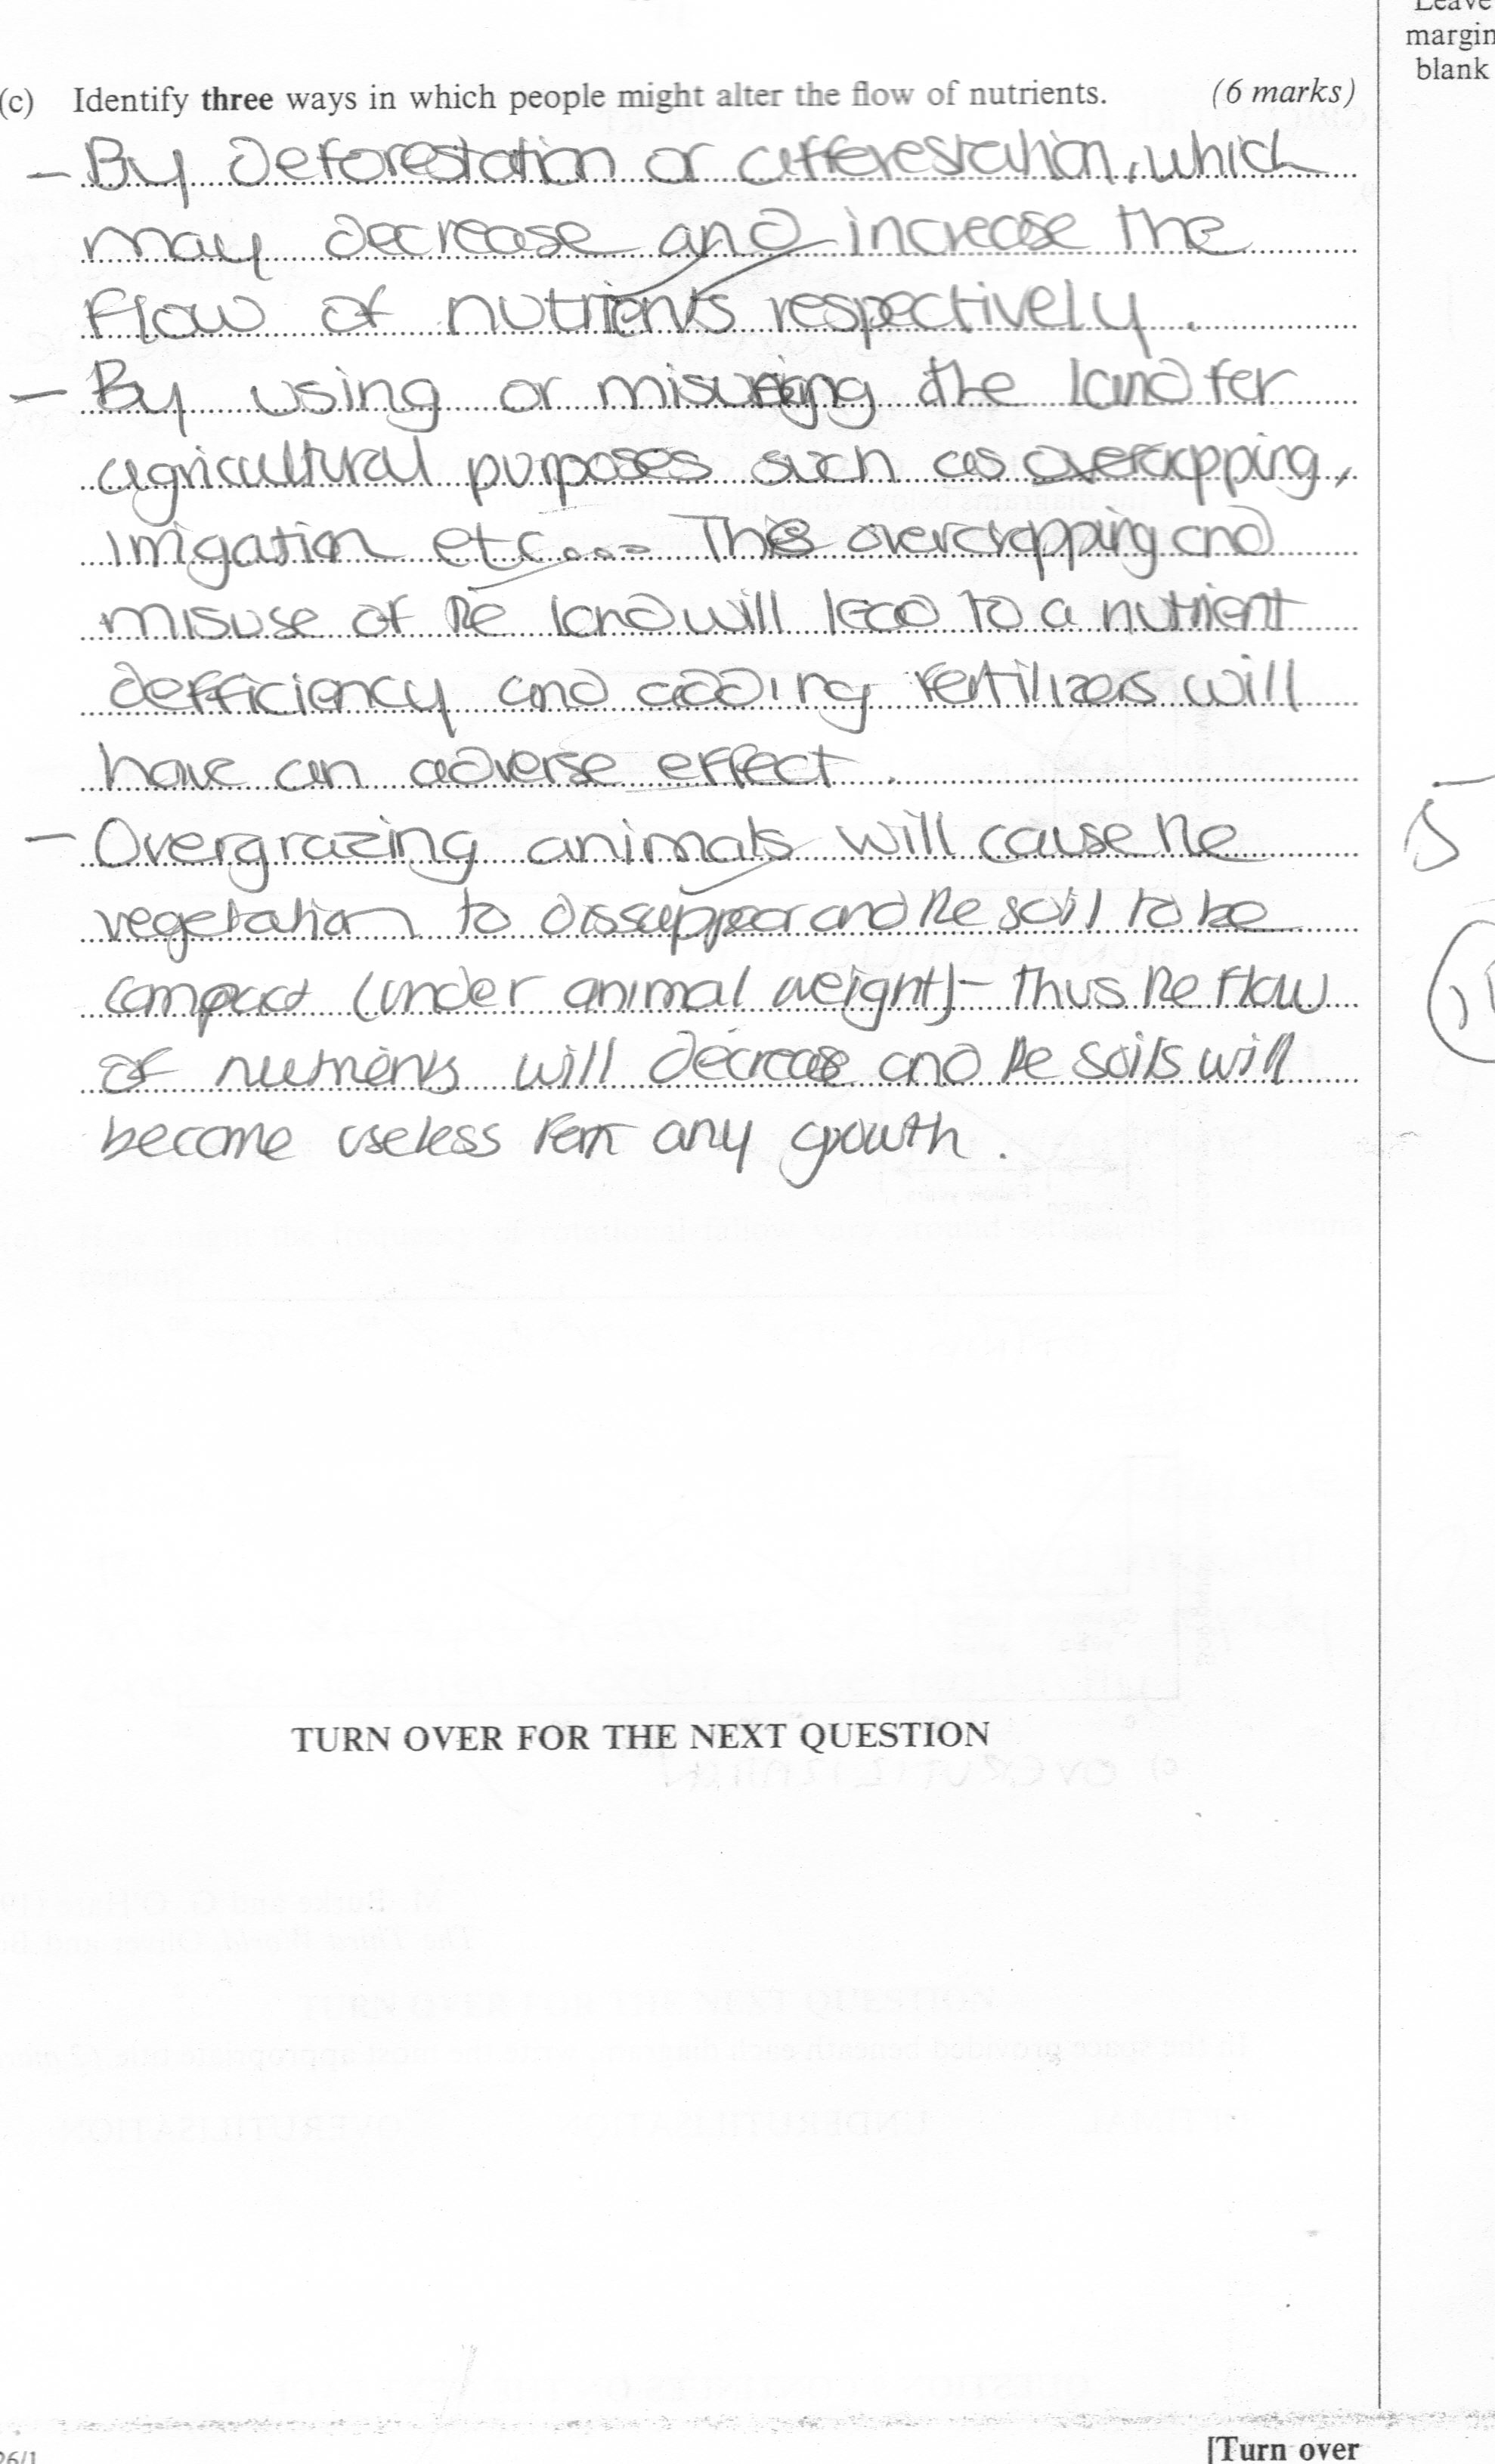 Leave
margin
blank
(c) Identify three ways in which people might alter the flow of nutrients. (6 marks)
- By deforestation or afforestation, which
may decrease and increase the
flow of nutrients respectively.
- By using or misusing the land for
agricultural purposes such as overcropping,
irrigation etc.... This overcropping and
misuse of the land will lead to a nutrient
defficiency and adding fertilizers will
have an adverse effect.
- Overgrazing animals will cause the
vegetation to dissappear and the soil to be
compact (under animal weight) - thus the flow
of nutrients will decrease and the soils will
become useless for any growth.
5
TURN OVER FOR THE NEXT QUESTION
26/1
[Turn over